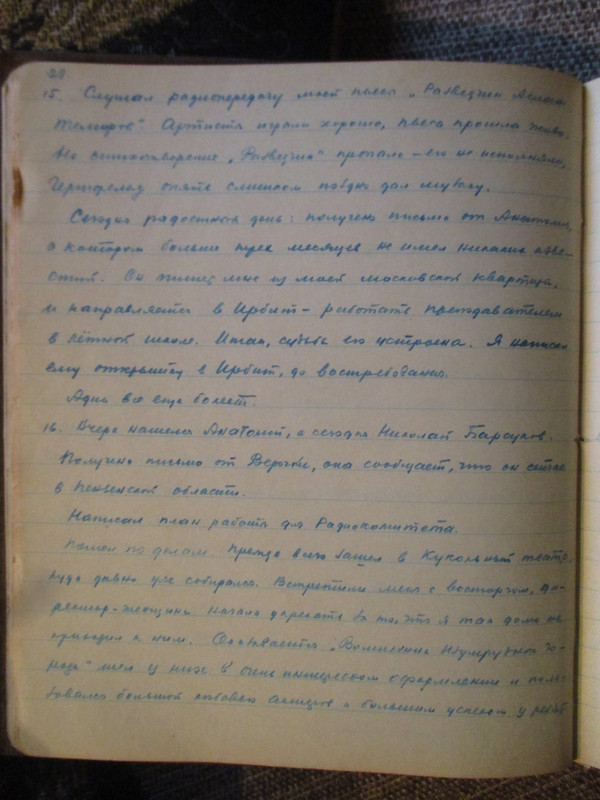 15. Слушал радиопередачу моей пьесы „Разведчик Ахмет
Артисты играли хорошо, пьеса прошла живо.
Но стихотворение „Разведчик" пропало – его не исполняли,
опять слишком поздно дал музыку.
Сегодня радостный день: получено письмо от Анатолия,
о котором больше трех месяцев не имел никаких изве-
стий. Он пишет мне из моей московской квартиры,
и направляется в Ирбит – работать преподавателем
в лётной школе. Итак, судьба его устроена. Я написал
ему открытку в Ирбит, до востребования.
Адик все еще болеет.
16. Вчера нашелся Анатолий, а сегодня Николай
Получено письмо от Верочки, она сообщает, что он сейчас
в Пензенской области.
Написал план работы для Радиокомитета.
Пошел по делам. Прежде всего зашел в Кукольный театр,
куда давно уже собирался. Встретили меня с восторгом, ди-
ректор-женщина начала упрекать за то, что я так долго не
приходил к ним. Оказывается „Волшебник Изумрудного го-
рода" шел у них в очень интересном оформлении и поль-
зовался большой любовью актеров и большим успехом у ребят